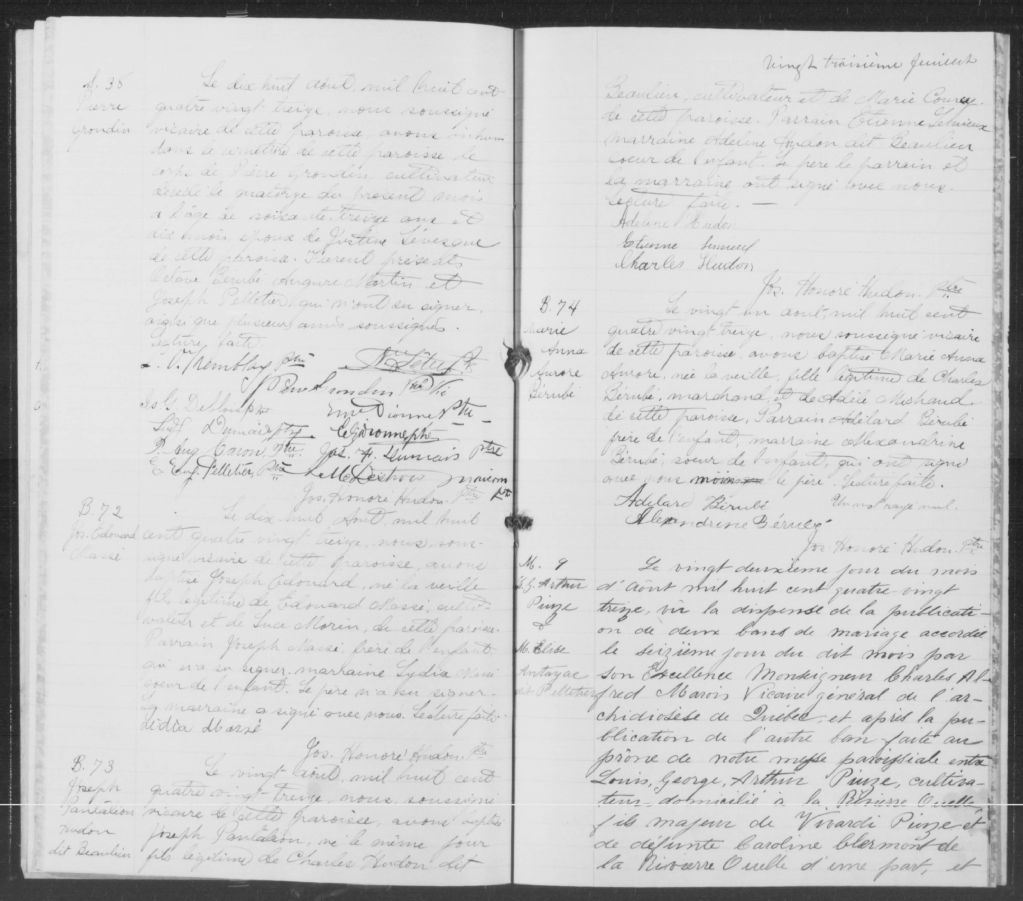 S. 35
Pierre
Grondin
Le dix huit août, mil huit cent
quatre vingt treize, nous soussigné
vicaire de cette paroisse, avons inhumé
dans le cimetière de cette paroisse le
corps de Pierre Grondin cultivateur
décédé le quatorze du présent mois
a l'âge de soixante-treize ans et
dix mois, époux de Justine Lévesque
de cette paroisse. Furent présents
Octave Bérubé Martin et
Joseph Pelletier, qui n'ont su signer,
ainsi que plusieurs amis soussignés.
Lecture faite.
Tremblay Ptre
Em. Dionne Ptre
Dumais Ptre
D. Aug Caron, Ptre Jos. H. Dumais Ptre
E. Eug. Pelletier, Ptre
Jos. Honoré Hudon Ptre
B. 72
Jos. Edouard
Massé
Le dix huit Août, mil huit
cent quatre vingt treize, nous sous-
signé vicaire de cette paroisse, avons
baptisé Joseph Edouard, né la veille
fils légitime de Edouard Massé, culti-
vateur et de Luce Morin, de cette paroisse.
Parrain Joseph Massé frère de l'enfant
qui n'a su signer, marraine Lydia Massé
soeur de l'enfant. Le père n'a su signer.
La marraine a signé avec nous. Lecture faite.
Lidia Massé
Jos. Honoré Hudon Ptre
B. 73
Joseph
Pantaléon
Hudon
dit Beaulieu
Le vingt août, mil huit cent
quatre vingt treize, nous, soussigné
vicaire de cette paroisse, avons baptisé
Joseph Pantaléon, né le même jour
fils légitime de Charles Hudon dit
Vingt troisième feuillet
Beaulieu, cultivateur et de Marie
de cette paroisse. Parrain Etienne Lemieux
marraine Adeline Hudon dit Beaulieu
soeur de l'enfant. Le père le parrain et
la marraine ont signé avec nous.
Lecture faite. —
Adeline Hudon
Etienne Lemieux
Charles Hudon
Jos. Honoré Hudon Ptre
B. 74
Marie
Anna
Aurore
Bérubé
Le vingt un août, mil huit cent
quatre vingt treize, nous soussigné vicaire
de cette paroisse, avons baptisé Marie Anna
Aurore, née la veille, fille légitime de Charles
Bérubé, marchand, et de Michaud
de cette paroisse. Parrain Adélard Bérubé
frère de l'enfant, marraine Alexandrine
Bérubé, soeur de l'enfant, qui ont signé
avec nous le père. Lecture faite.
Adélard Bérubé Un mot rayé nul.
Alexandrine Bérubé
Jos Honoré Hudon Ptre
M. 9
L. G. Arthur
Piuze
&
M. Elise
Autayac
dit Pelletier
Le vingt deuxième jour du mois
d'Août mil huit cent quatre-vingt
treize, vu la dispense de la publicati-
on de deux bans de mariage accordée
le seizième jour du dit mois par
son Excellence Monseigneur Charles Al-
fred Marois Vicaire général de l'ar-
chidiocèse de Québec, et après la pu-
blication de l'autre ban faite au
prône de notre messe paroissiale entre
Louis, George, Arthur Piuze, cultiva-
teur, domicilié à la Rivière Ouelle,
fils majeur de Vivardi Piuze et
de défunte Caroline Clermont de
la Rivierre Ouelle d'une part, et